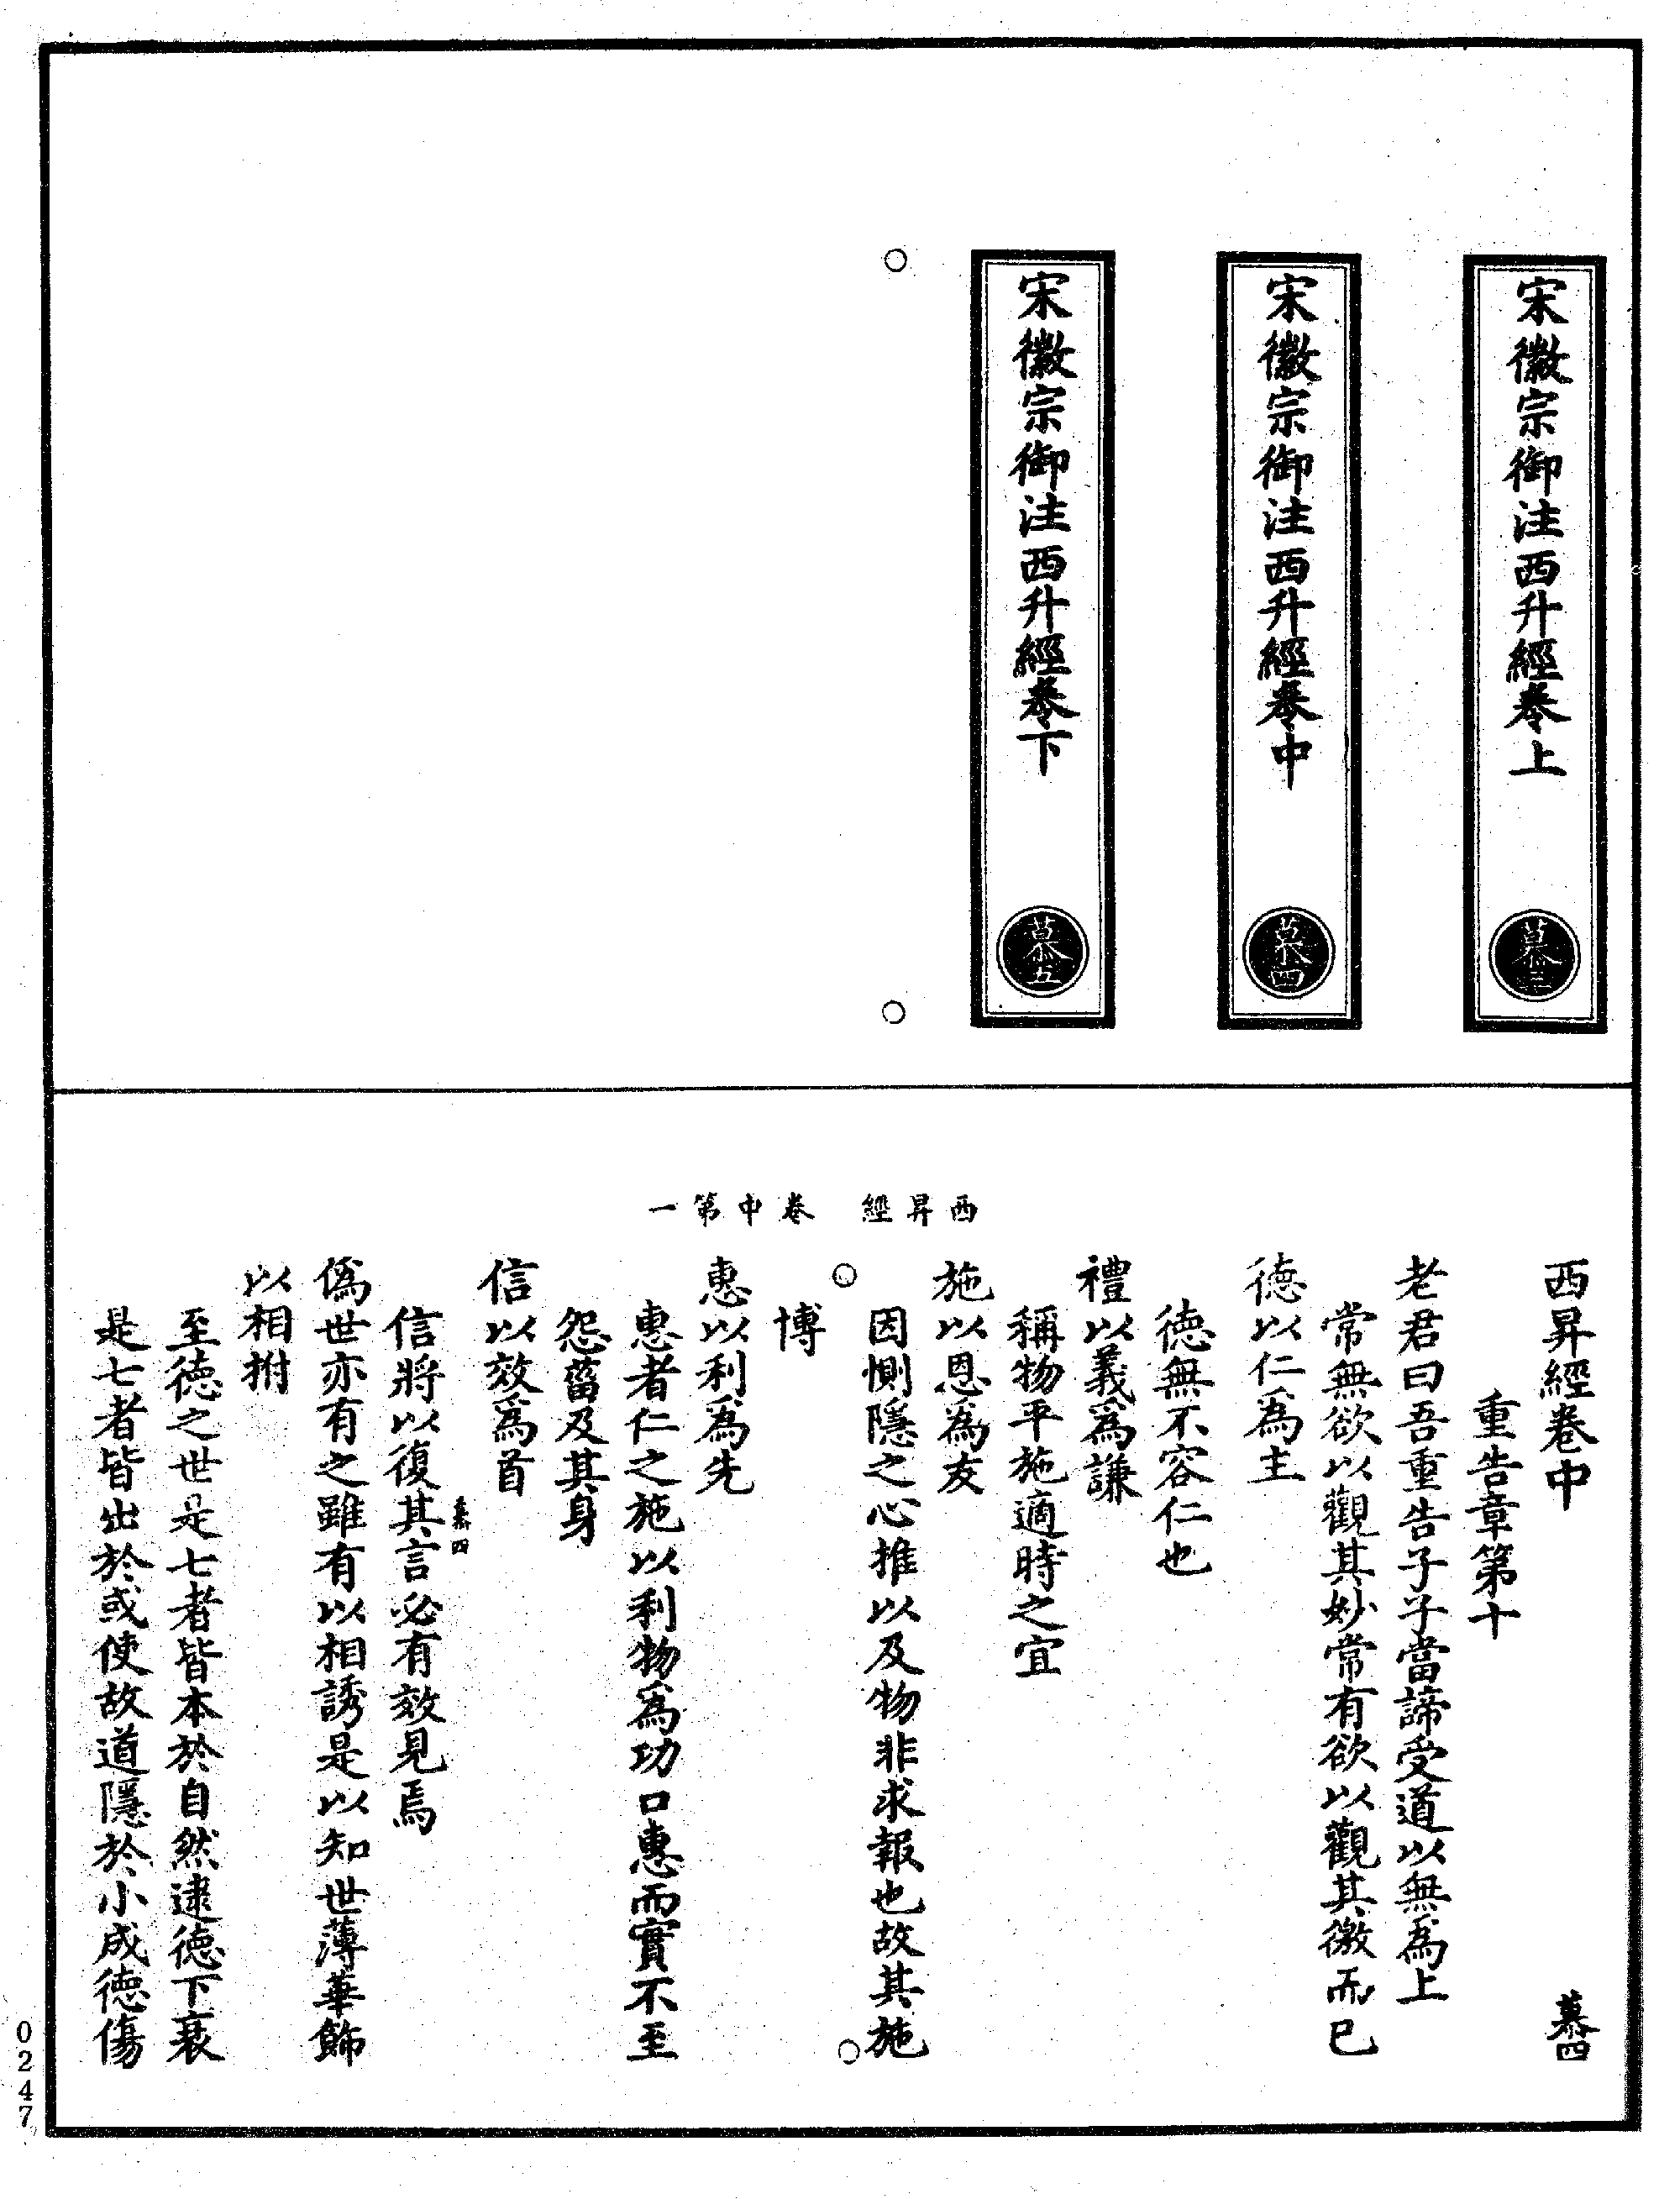 宋徽宗御注西升經卷上
慕三
宋徽宗御注西升經卷中
慕四
宋徽宗御注西升經卷下
慕五
西昇經　卷中第一
西昇經卷中　慕四
重告章第十
老君曰吾重告子子當諦受道以無為上
常無欲以觀其妙常有欲以觀其徼而已
德以仁為主
德無不容仁也
禮以義爲謙
稱物平施適時之宜
施以恩為友
因惻隱之心推以及物非求報也故其施
博
惠以利爲先
惠者仁之施以利物爲功口惠而實不至
怨菑及其身
信以效爲首
信將以復其言必有效見焉
慕四
僞世亦有之雖有以相誘是以知世薄華飾
以相拊
至德之世是七者皆本於自然逮德下衰
是七者皆出於或使故道隱於小成德傷
0247